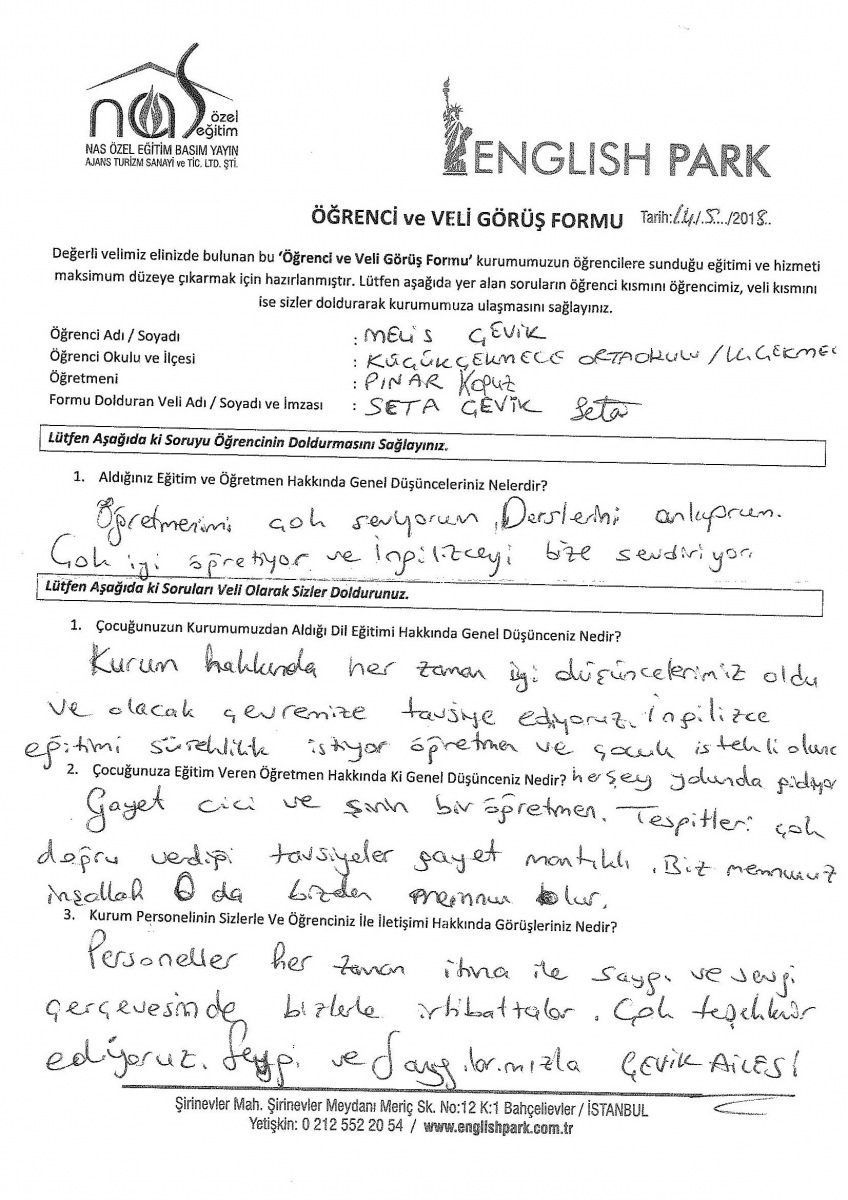 nas özel eğitim
NAS ÖZEL EĞİTİM BASIM YAYIN
AJANS TURİZM SANAYİ ve TİC. LTD. ŞTİ.
ENGLISH PARK
ÖĞRENCİ ve VELİ GÖRÜŞ FORMU Tarih:14/5.../2018..
Değerli velimiz elinizde bulunan bu 'Öğrenci ve Veli Görüş Formu' kurumumuzun öğrencilere sunduğu eğitimi ve hizmeti
maksimum düzeye çıkarmak için hazırlanmıştır. Lütfen aşağıda yer alan soruların öğrenci kısmını öğrencimiz, veli kısmını
ise sizler doldurarak kurumumuza ulaşmasını sağlayınız.
Öğrenci Adı / Soyadı : MELİS ÇEVİK
Öğrenci Okulu ve İlçesi : KÜÇÜKÇEKMECE ORTAOKULU / K.ÇEKMEC
Öğretmeni : PINAR KOPUZ
Formu Dolduran Veli Adı / Soyadı ve İmzası : SETA ÇEVİK Seta
Lütfen Aşağıda ki Soruyu Öğrencinin Doldurmasını Sağlayınız.
1. Aldığınız Eğitim ve Öğretmen Hakkında Genel Düşünceleriniz Nelerdir?
Öğretmenimi çok seviyorum, Derslerini anlıyorum.
Çok iyi öğretiyor ve İngilizceyi bize sevdiriyor.
Lütfen Aşağıda ki Soruları Veli Olarak Sizler Doldurunuz.
1. Çocuğunuzun Kurumumuzdan Aldığı Dil Eğitimi Hakkında Genel Düşünceniz Nedir?
Kurum hakkında her zaman iyi düşüncelerimiz oldu
ve olacak çevremize tavsiye ediyoruz. İngilizce
eğitimi süreklilik istiyor öğretmen ve çocuk istekli olunc
2. Çocuğunuza Eğitim Veren Öğretmen Hakkında Ki Genel Düşünceniz Nedir? herşey yolunda gidiyor
Gayet cici ve şirin bir öğretmen. Tespitleri çok
doğru verdiği tavsiyeler gayet mantıklı. Biz memnunuz
inşallah O da bizden memnun olur.
3. Kurum Personelinin Sizlerle Ve Öğrenciniz İle İletişimi Hakkında Görüşleriniz Nedir?
Personeller her zaman itina ile saygı ve sevgi
çerçevesinde bizlerle irtibattalar. Çok teşekkür
ediyoruz. Sevgi ve Saygılarımızla ÇEVİK AİLESİ
Şirinevler Mah. Şirinevler Meydanı Meriç Sk. No:12 K:1 Bahçelievler / İSTANBUL
Yetişkin: 0 212 552 20 54 / www.englishpark.com.tr